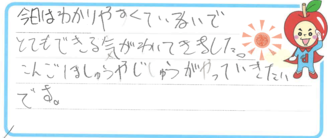 今日はわかりやすくていねいで
とてもできる気がわいてきました。
こんごはしゅうやじしゅうがやっていきたい
です。